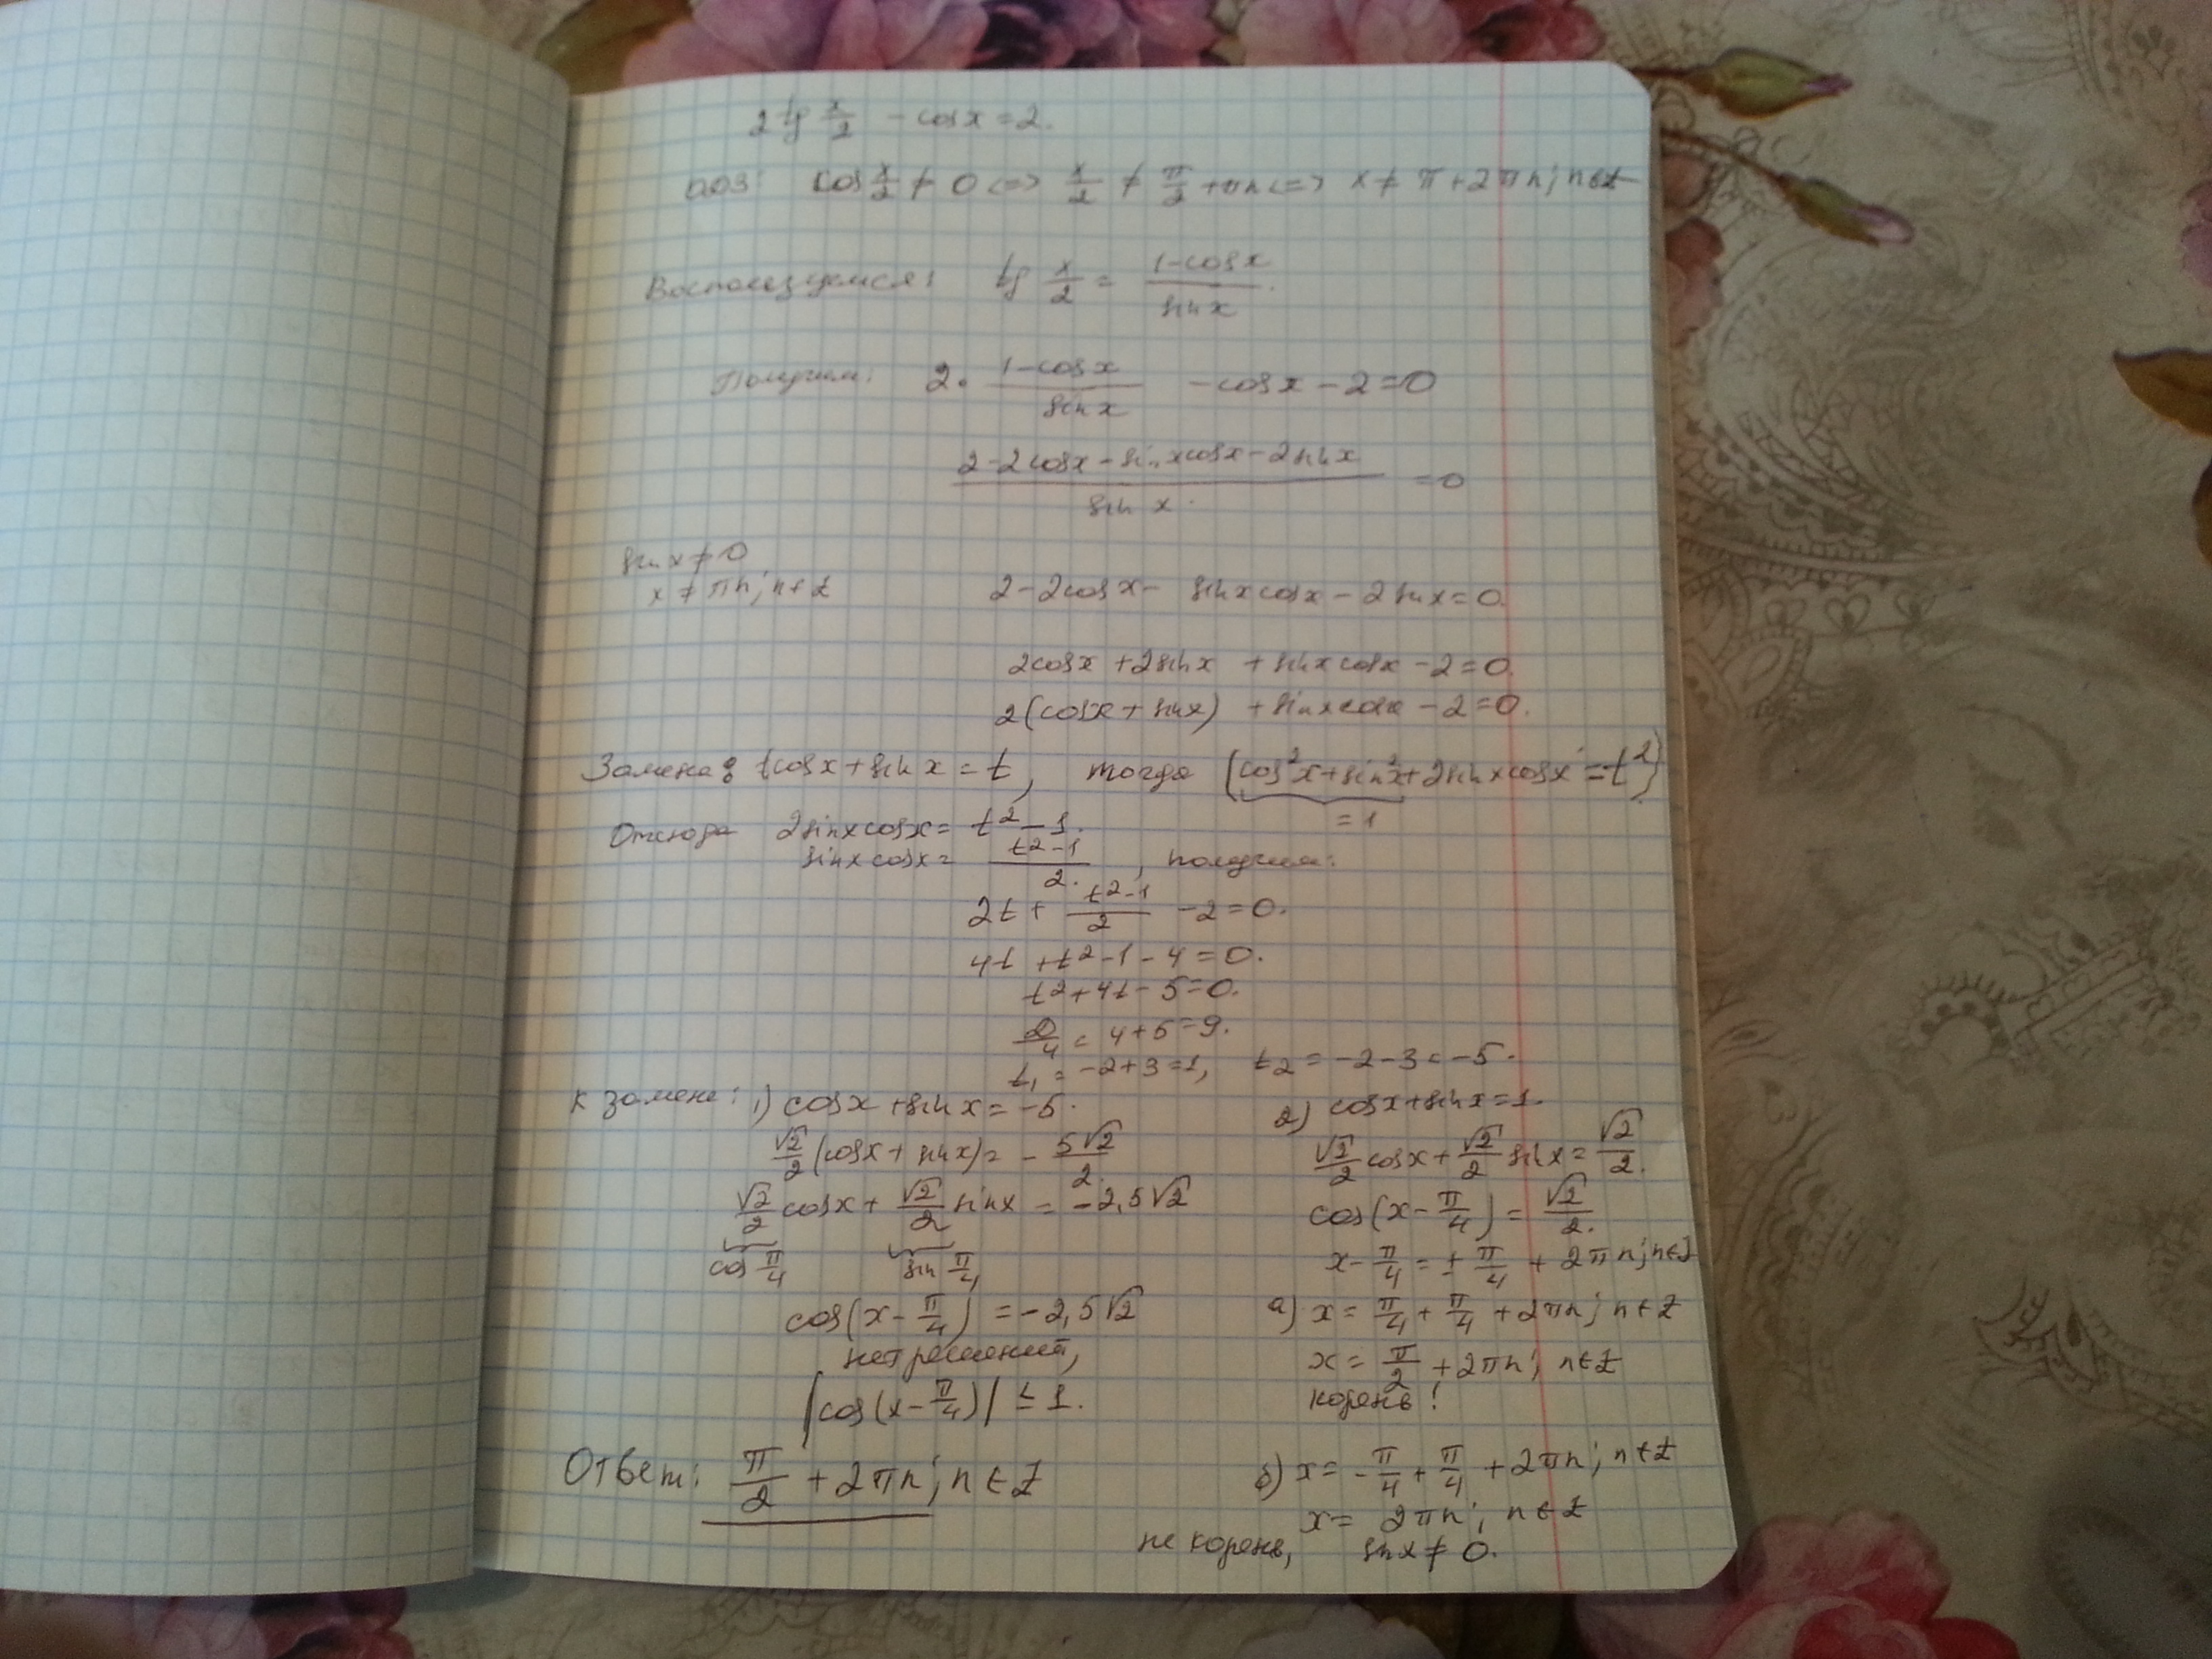 2 tg x/2 - cos x = 2.
ОДЗ: cos x/2 ≠ 0 <=> x/2 ≠ π/2 + πn <=> x ≠ π + 2πn; n∈Z
Воспользуемся: tg x/2 = (1-cos x)/(sin x).
Получим: 2 · (1-cos x)/(sin x) - cos x - 2 = 0
(2-2cos x - sin x cos x - 2 sin x)/(sin x) = 0
sin x ≠ 0
x ≠ πn; n∈Z
2-2cos x - sin x cos x - 2 sin x = 0.
2cos x + 2sin x + sin x cos x - 2 = 0.
2(cos x + sin x) + sin x cos x - 2 = 0.
Замена: cos x + sin x = t, тогда (cos²x + sin²x + 2sin x cos x = t²)
= 1
Отсюда 2sin x cos x = t² - 1.
sin x cos x = (t²-1)/2., получим:
2t + (t²-1)/2 - 2 = 0.
4t + t² - 1 - 4 = 0.
t² + 4t - 5 = 0.
D/4 = 4 + 5 = 9.
t₁ = -2+3 = 1, t₂ = -2-3 = -5.
К замене: 1) cos x + sin x = -5.
√2/2 (cos x + sin x) = - 5√2/2.
√2/2 cos x + √2/2 sin x = -2,5√2
cos π/4 sin π/4
cos(x - π/4) = -2,5√2
нет решений,
|cos(x - π/4)| ≤ 1.
2) cos x + sin x = 1.
√2/2 cos x + √2/2 sin x = √2/2.
cos(x - π/4) = √2/2.
x - π/4 = ± π/4 + 2πn; n∈Z
а) x = π/4 + π/4 + 2πn; n∈Z
x = π/2 + 2πn; n∈Z
корень!
б) x = -π/4 + π/4 + 2πn; n∈Z
x = 2πn; n∈Z
не корень, sin x ≠ 0.
Ответ: π/2 + 2πn; n∈Z